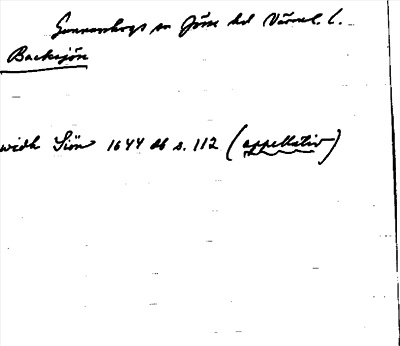 Gunnarskogs sn Jösse hd Värml. l.
Backsjön
widh Siön 1644 Jb s. 112 (appellativ)